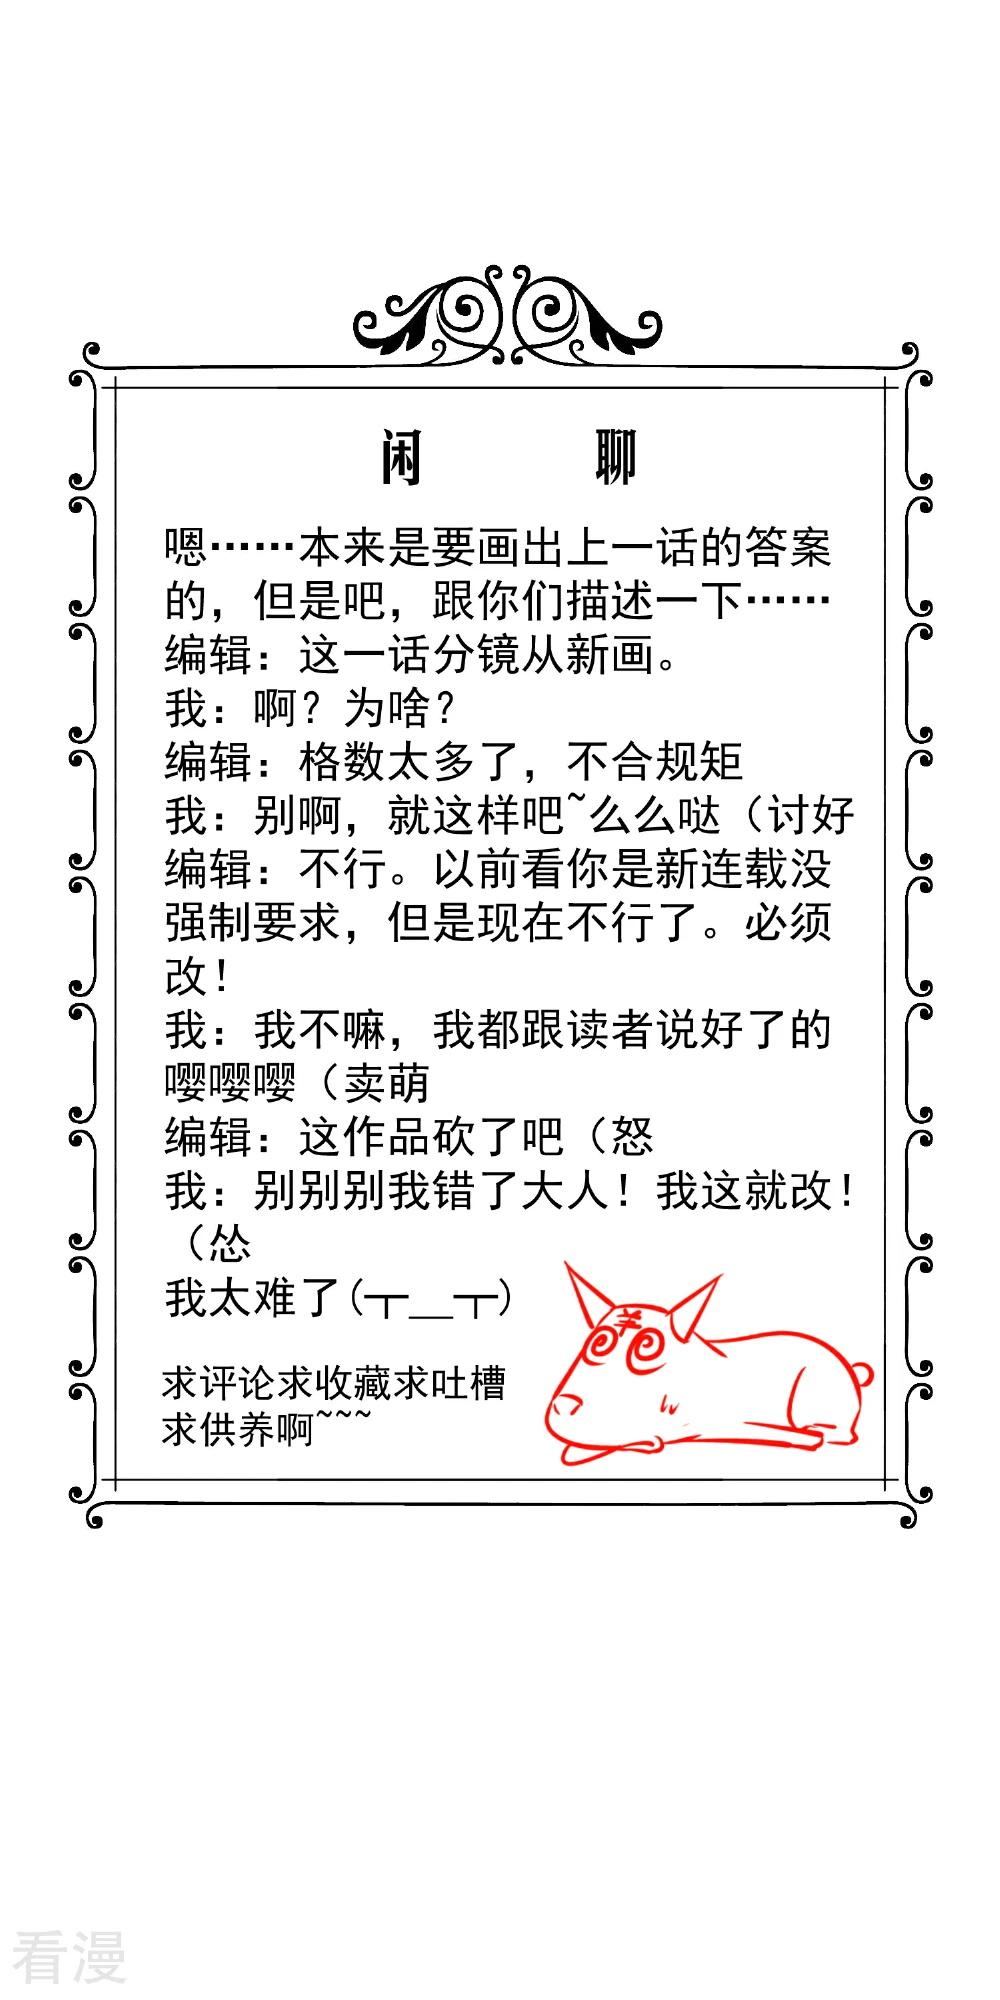 闲 聊
嗯……本来是要画出上一话的答案
的，但是吧，跟你们描述一下……
编辑：这一话分镜从新画。
我：啊？为啥？
编辑：格数太多了，不合规矩
我：别啊，就这样吧~么么哒（讨好
编辑：不行。以前看你是新连载没
强制要求，但是现在不行了。必须
改！
我：我不嘛，我都跟读者说好了的
嘤嘤嘤（卖萌
编辑：这作品砍了吧（怒
我：别别别我错了大人！我这就改！
（怂
我太难了(┬＿┬)
求评论求收藏求吐槽
求供养啊~~~
看漫